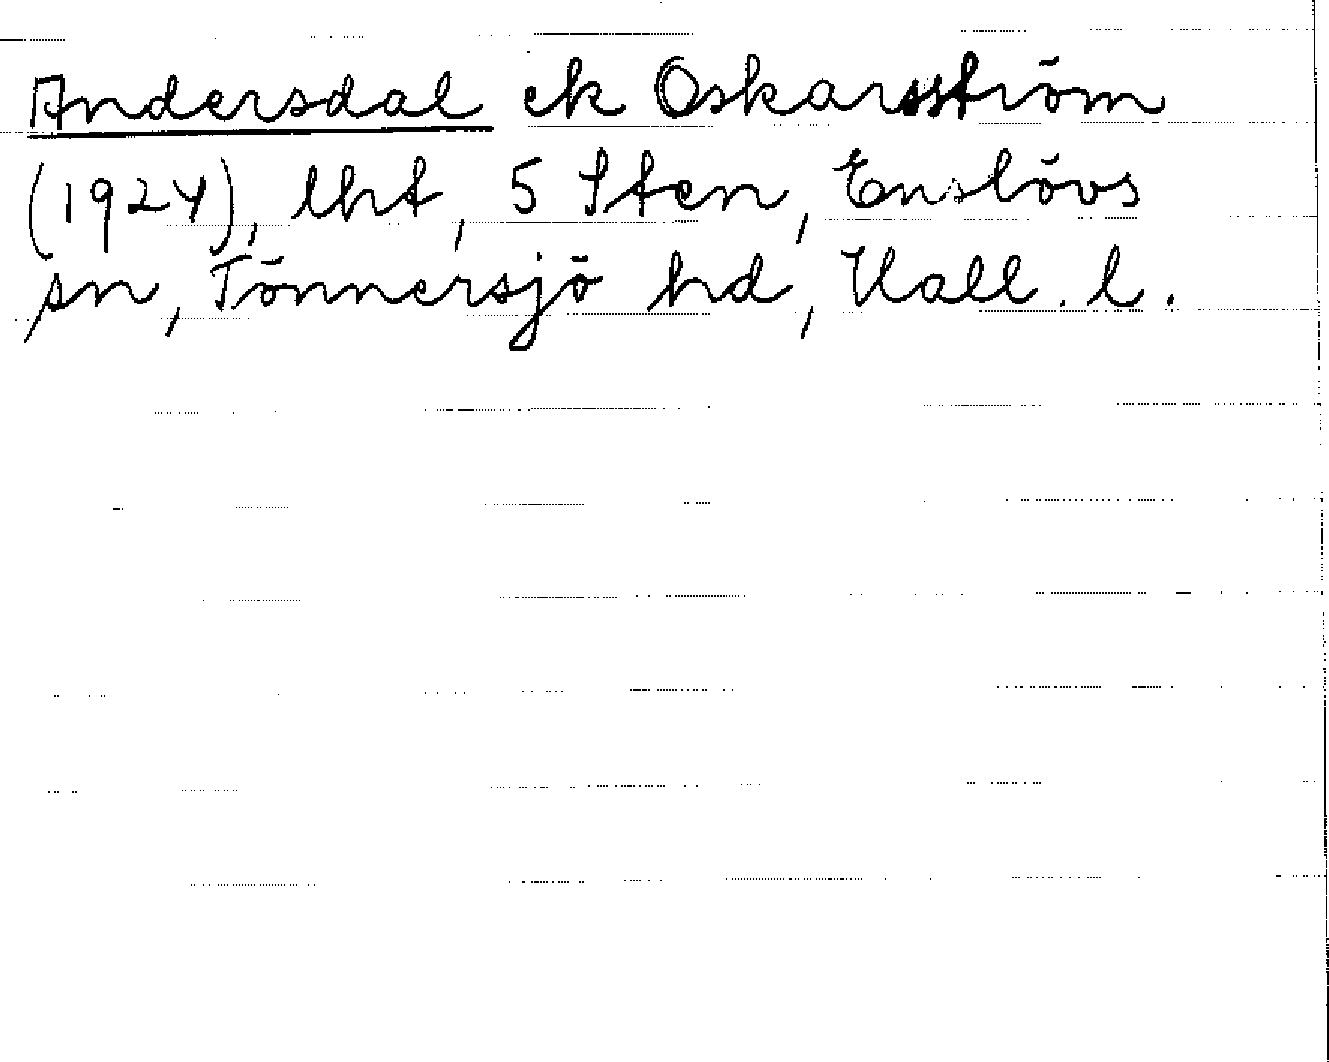 Andersdal ek Oskarsström
(1924), lht, 5 Sten, Enslövs
sn, Tönnersjö hd, Hall. l.